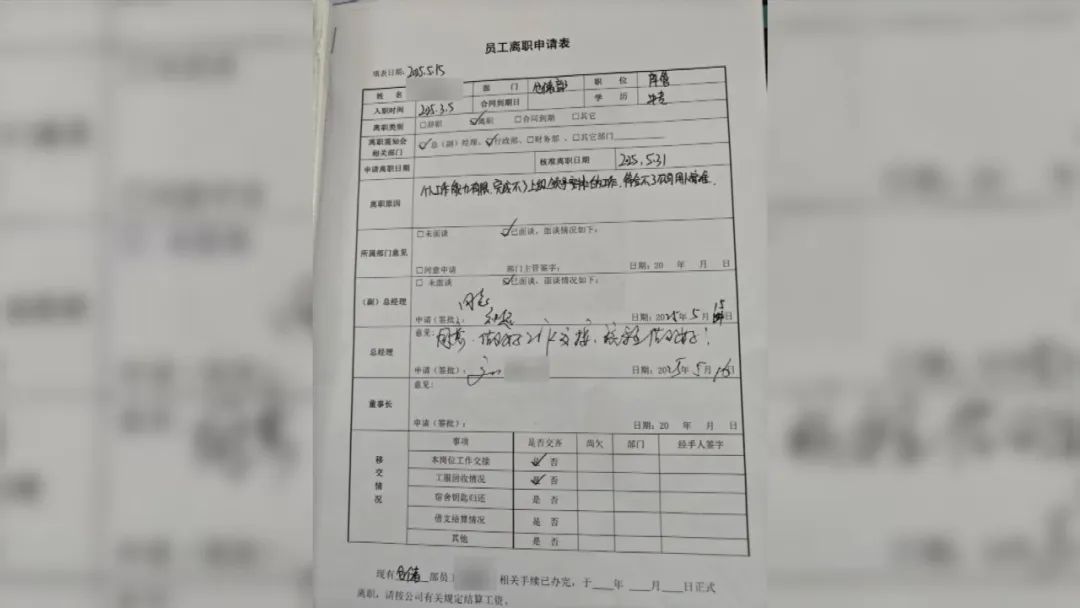 员工离职申请表
填表日期：2025.5.15
姓 名 部 门 仓储部 职 位 库管
入职时间 2025.3.5 合同到期日 学 历 大专
离职类别 □辞职 ☑离职 □合同到期 □其它
离职需知会相关部门 ☑总（副）经理、☑行政部、□财务部、□其它部门
申请离职日期 核准离职日期 2025.5.31
离职原因 个人工作能力有限，完成不了上级领导安排的工作，
所属部门意见 □未面谈 ☑已面谈，面谈情况如下：
□同意申请 部门主管签字： 日期：20 年 月 日
（副）总经理 □ 未面谈 ☑已面谈，面谈情况如下：
同意
申请（签批）： 日期：2025年5月15日
总经理 意见：同意．做好工作交接，
申请（签批）： 日期：2025年5月16日
董事长 意见：
申请（签批）： 日期：20 年 月 日
移交情况 事项 是否交齐 尚欠 部门 经手人签字
本岗位工作交接 是 否
工服回收情况 是 否
宿舍钥匙归还 是 否
借支结算情况 是 否
其他 是 否
现有 仓储 部员 相关手续已办完，于 年 月 日正式
离职，请按公司有关规定结算工资。